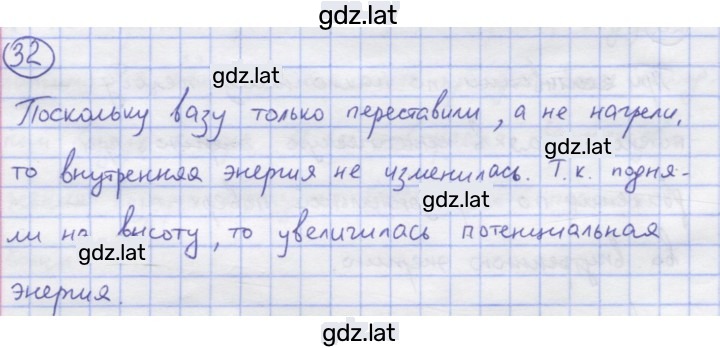 gdz.lat
32
gdz.lat
Поскольку вазу только переставили, а не нагрели,
то внутренняя энергия не изменилась. Т.к. подня-
gdz.lat
ли на высоту, то увеличилась потенциальная
gdz.lat
энергия.
gdz.lat